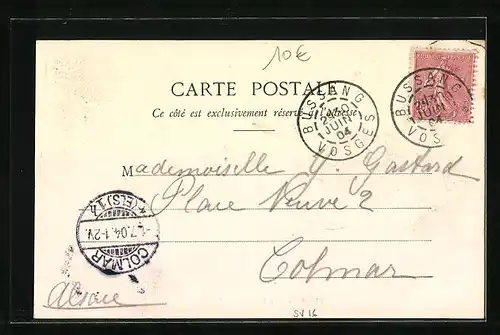 10€
CARTE POSTALE
Ce côté est exclusivement réservé à l'adresse
BUSSANG
JUIN
04
VOSGES
BUSSANG
JUIN
04
VOS
Mademoiselle Y. Gastard
Place Neuve 2
Colmar
Alsace
(ELS) 1
1.7.04.1-2V.
COLMAR
SV 16